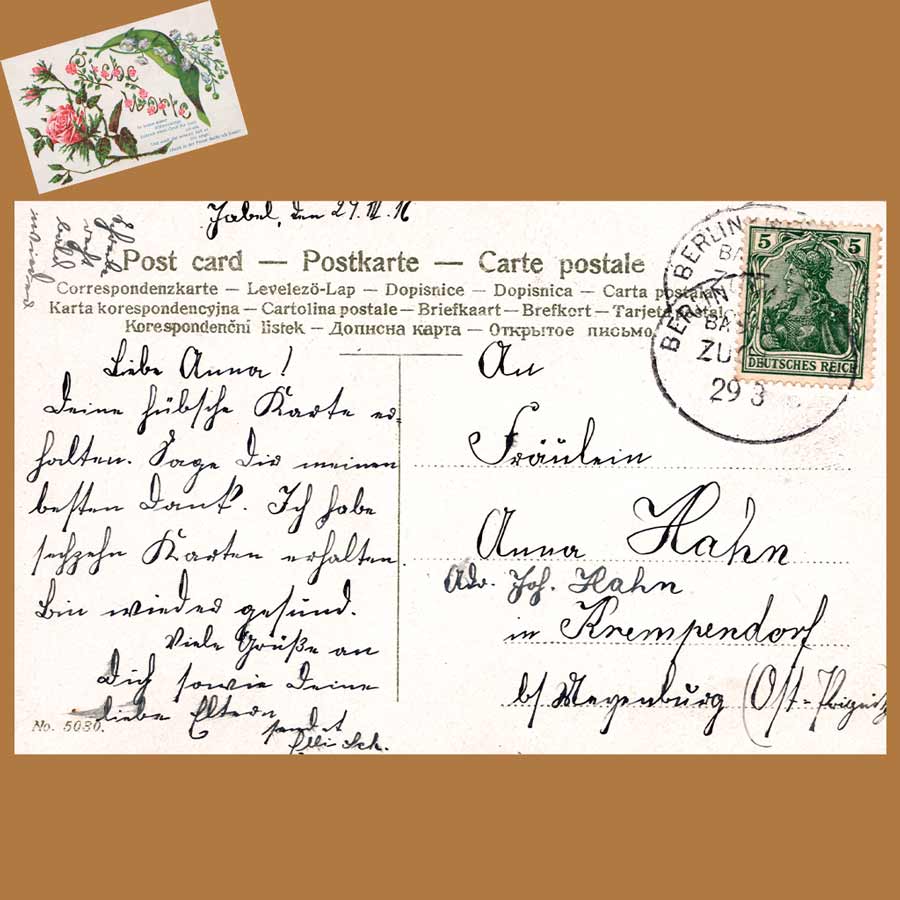 Liebe
Worte
Jabel, den 27. III. 16
Schreibe
recht
bald
wieder
Post card — Postkarte — Carte postale
Correspondenzkarte – Levelezö-Lap – Dopisnice – Dopisnica – Carta postala
Karta korespondencyjna – Cartolina postale – Briefkaart – Brefkort – Tarjeta postal
Korespondenční listek – Дописна карта – Открытое письмо
BERLIN
BERLIN
BA
ZU
29 3
5 5
DEUTSCHES REICH
Liebe Anna!
Deine hübsche Karte er-
halten. Sage Dir meinen
besten Dank. Ich habe
sechzehn Karten erhalten.
Bin wieder gesund.
Viele Grüße an
Dich sowie Deine
liebe Eltern
sendet
Elli Sch.
An
Fräulein
Anna Hahn
Adr. Joh. Hahn
in Krempendorf
b/ Meyenburg (Ost-Prignitz
No. 5080.